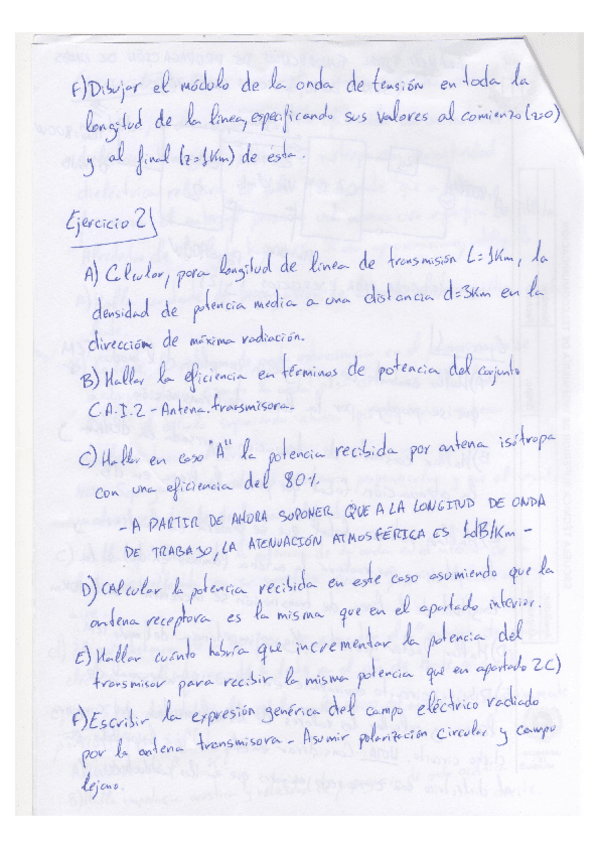 F) Dibujar el módulo de la onda de tensión en toda la
longitud de la linea, especificando sus valores al comienzo (z=0)
y al final (z=1Km) de ésta.
Ejercicio 2)
A) Calcular, para longitud de linea de transmisión L=1Km, la
densidad de potencia media a una distancia d=3Km en la
dirección de máxima radiación.
B) Hallar la eficiencia en términos de potencia del conjunto
C.A.I.2 - Antena transmisora.
C) Hallar en caso "A" la potencia recibida por antena isótropa
con una eficiencia del 80%.
- A PARTIR DE AHORA SUPONER QUE A LA LONGITUD DE ONDA
DE TRABAJO, LA ATENUACIÓN ATMOSFÉRICA ES 1dB/Km -
D) CAlcular la potencia recibida en este caso asumiendo que la
antena receptora es la misma que en el apartado anterior.
E) Hallar cuánto habría que incrementar la potencia del
transmisor para recibir la misma potencia que en apartado 2C)
F) Escribir la expresión genérica del campo eléctrico radiado
por la antena transmisora - Asumir polarización circular y campo
lejano.